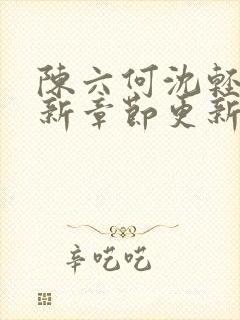 陳六何沈輕
新章節更新
辛吃吃